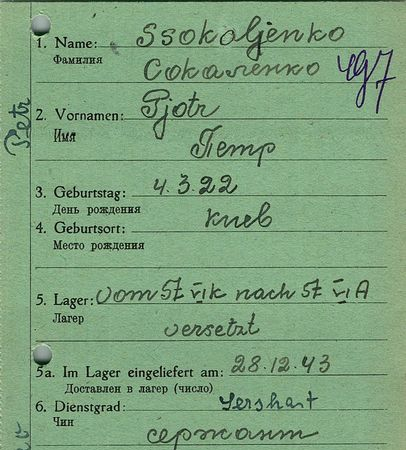 1. Name: Ssokaljenko
Фамилия Сокаленко
497
Petr
2. Vornamen: Pjotr
Имя
Петр
3. Geburtstag: 4.3.22
День рождения
4. Geburtsort: Киев
Место рождения
5. Lager: vom St VI K nach St VI A
Лагер
versetzt
5a. Im Lager eingeliefert am: 28.12.43
Доставлен в лагер (число)
6. Dienstgrad: Sershant
Чин
сержант